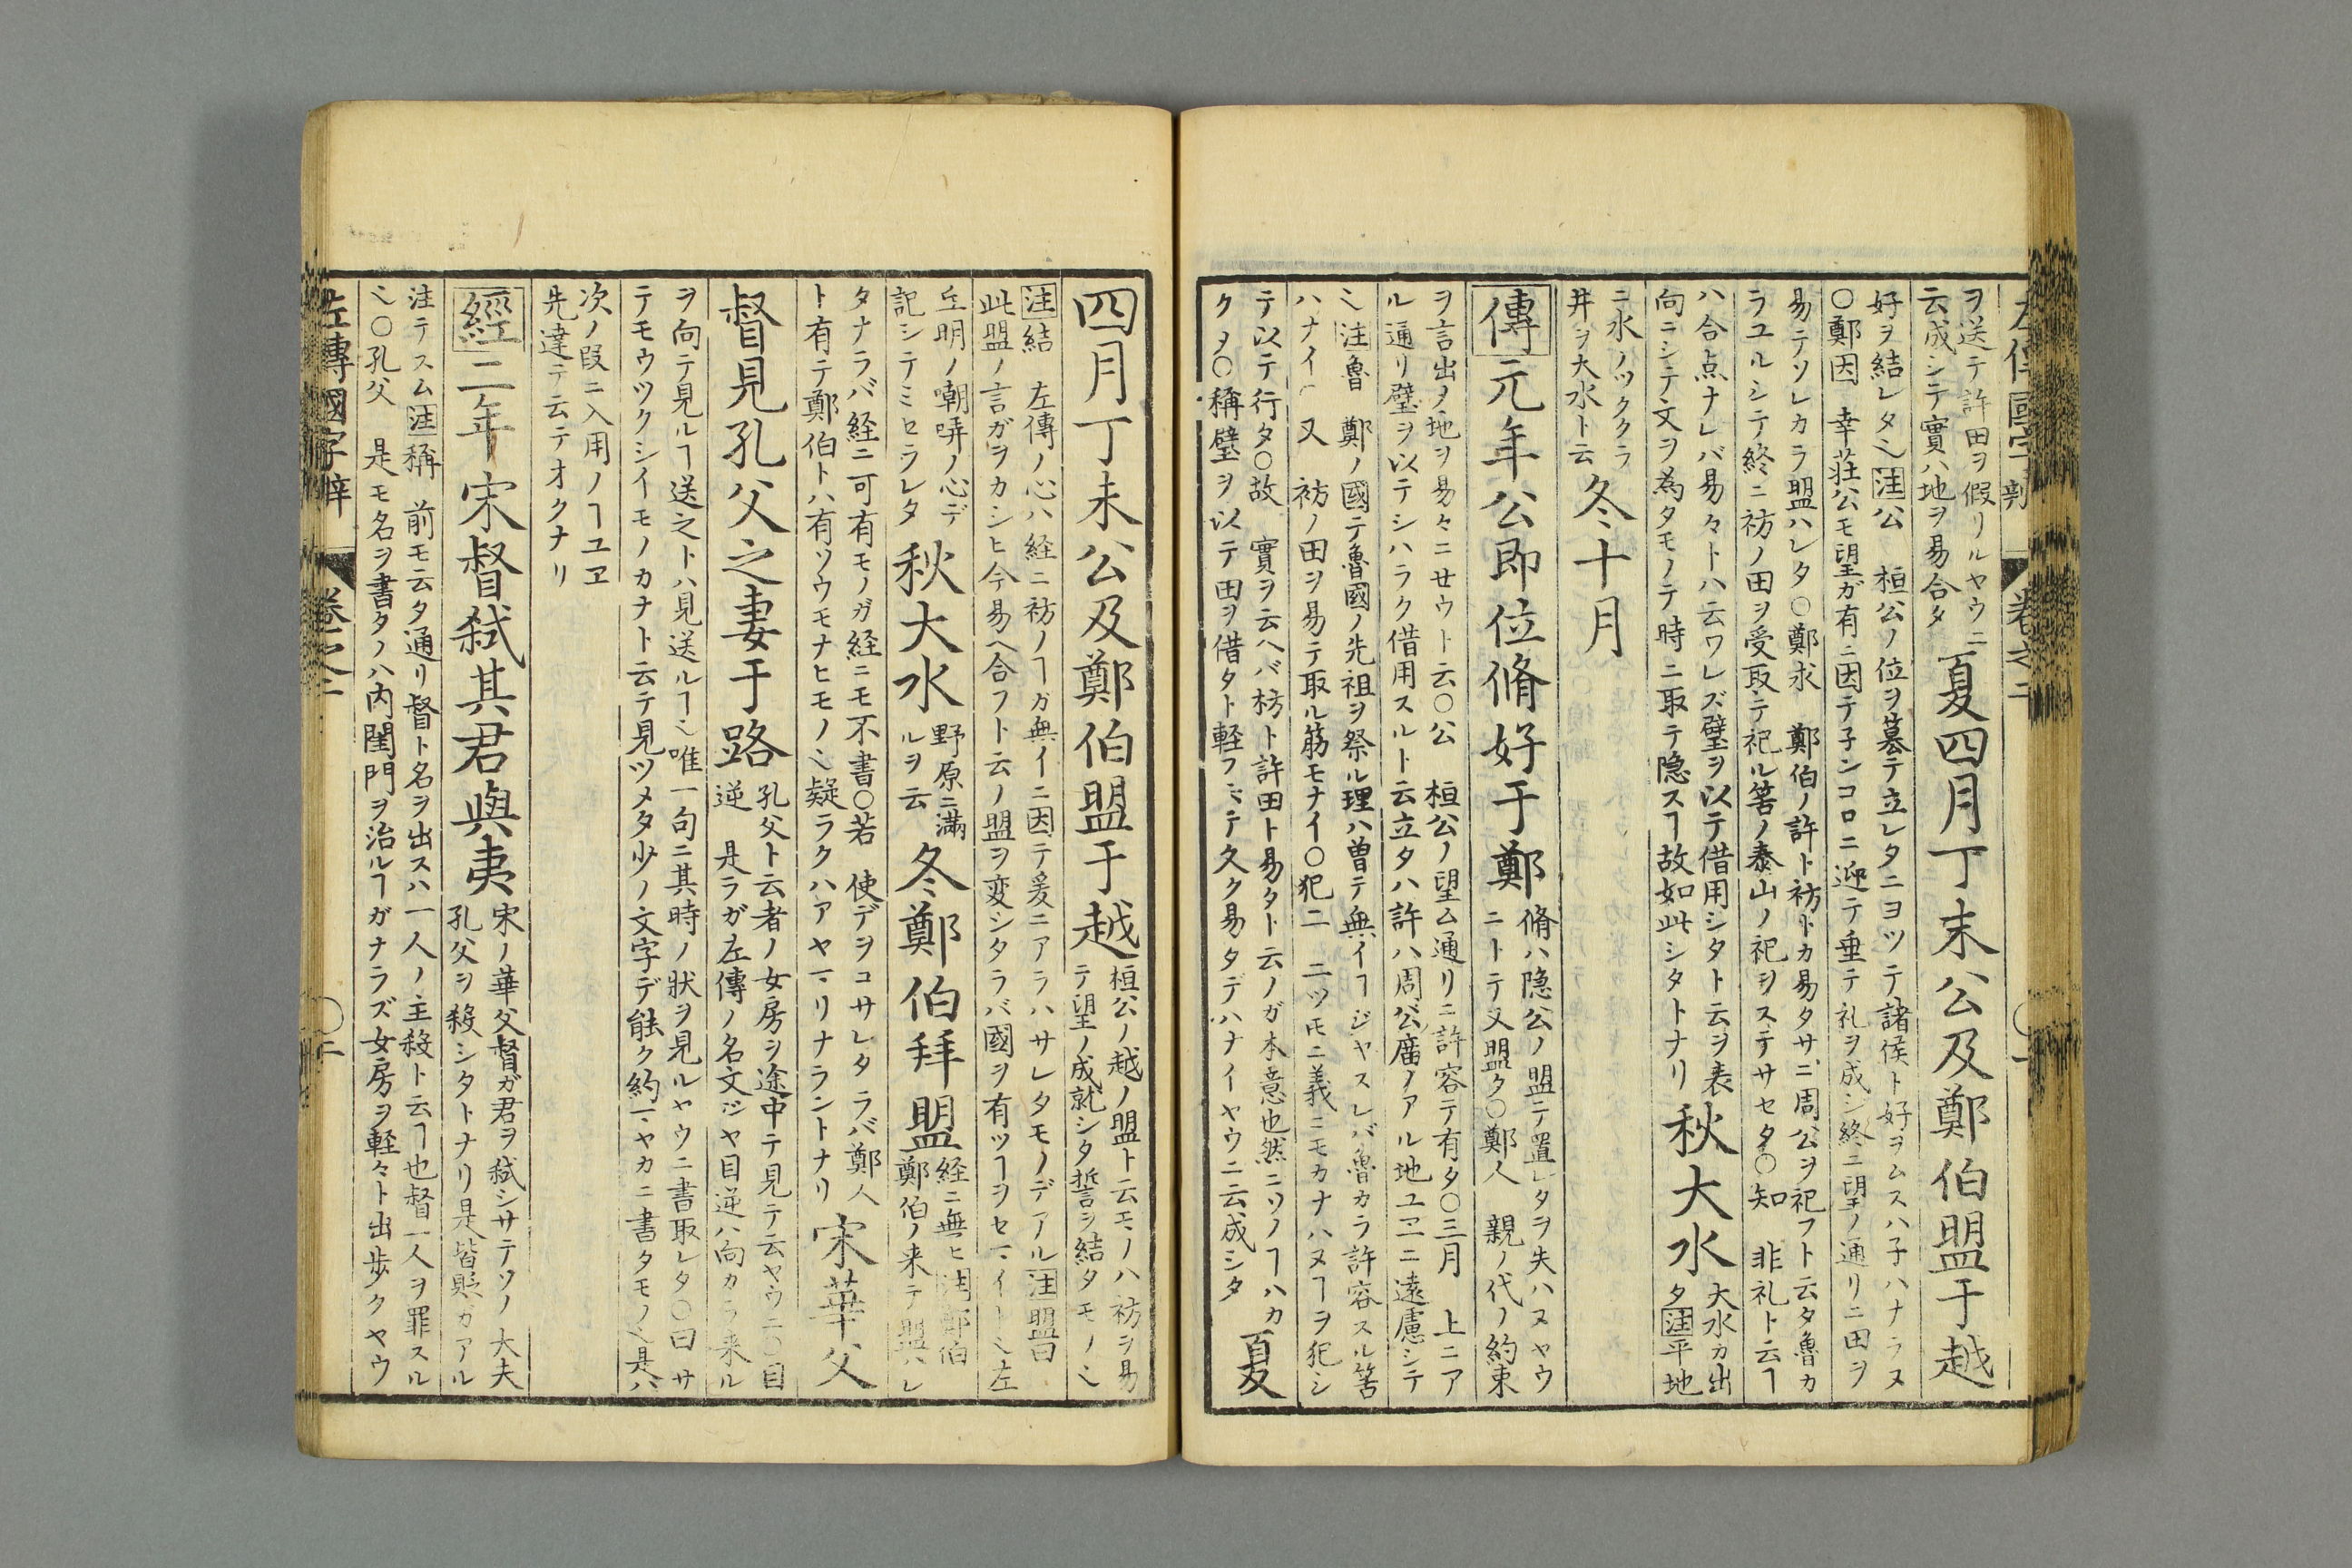 左傳國字辯 卷之二 〇一
ヲ送テ許田ヲ假リルヤウニ
云成シテ實ハ地ヲ易合タ
夏四月丁未公及鄭伯盟于越
好ヲ結レタ〻注公 桓公ノ位ヲ簒テ立レタニヨツテ諸侯ト好ヲムスハ子ハナラヌ
〇鄭因 幸荘公モ望ガ有ニ因テ子ンコロニ迎テ垂テ礼ヲ成シ終ニ望ノ通リニ田ヲ
易テソレカラ盟ハレタ〇鄭求 鄭伯ノ許ト祊トカ易タサニ周公ヲ祀フト云タ魯カ
ラユルシテ終ニ祊ノ田ヲ受取テ祀ル筈ノ泰山ノ祀ヲステサセタ〇知 非礼ト云ヿ
ハ合点ナレバ易々トハ云ワレズ璧ヲ以テ借用シタト云ヲ表
向ニシテ文ヲ為タモノテ時ニ取テ隠スヿ故如此シタトナリ
秋大水
大水カ出
タ注平地
ニ水ノツククラ
井ヲ大水ト云
冬十月
傳元年公即位脩好于鄭
脩ハ隠公ノ盟テ置レタヲ失ハヌヤウ
ニトテ又盟ク〇鄭人 親ノ代ノ約束
ヲ言出ノ地ヲ易々ニセウト云〇公 桓公ノ望ム通リニ許容テ有タ〇三月 上ニア
ル通リ璧ヲ以テシハラク借用スルト云立タハ許ハ周公ガ廟ノアル地ユヱニ遠慮シテ
〻注魯 鄭ノ國テ魯國ノ先祖ヲ祭ル理ハ曽テ無イヿジヤスレバ魯カラ許容スル筈
ハナイ〻又 祊ノ田ヲ易テ取ル筋モナイ〇犯二 二ツ𪜈ニ義ニモカナハヌヿヲ犯シ
テ以テ行タ〇故 實ヲ云ヘバ枋ト許田ト易タト云ノガ本意也然ニソノヿハカ
クメ〇稱璧ヲ以テ田ヲ借タト軽フ〆テ久ク易タデハナイヤウニ云成シタ
夏
四月丁未公及鄭伯盟于越
桓公ノ越ノ盟ト云モノハ祊ヲ易
テ望ノ成就シタ誓ヲ結タモノ〻
注結 左傳ノ心ハ経ニ祊ノヿガ無イニ因テ爰ニアラハサレタモノデアル注盟曰
此盟ノ言ガヲカシヒ今易ヘ合フト云ノ盟ヲ変シタラバ國ヲ有ツヿヲセマイト〻左
丘明ノ嘲哢ノ心デ
記シテミセラレタ
秋大水
野原ニ満
ルヲ云
冬鄭伯拜盟
経ニ無ヒ注鄭伯
鄭伯ノ来テ盟ハレ
タナラバ経ニ可有モノガ経ニモ不書〇若 使デヲコサレタラバ鄭人
ト有テ鄭伯トハ有ソウモナヒモノ〻疑ラクハアヤマリナラントナリ
宋華父
督見孔父之妻于路
孔父ト云者ノ女房ヲ途中テ見テ云ヤウニ〇目
逆 是ラガ左傳ノ名文ジヤ目逆ハ向カラ来ル
ヲ向テ見ルヿ送之トハ見送ルヿ〻唯一句ニ其時ノ狀ヲ見ルヤウニ書取レタ〇曰 サ
テモウツクシイモノカナト云テ見ツメタ少ノ文字デ能ク約マヤカニ書タモノ〻是ハ
次ノ段ニ入用ノヿユヱ
先達テ云テオクナリ
經二年宋督弑其君與夷
宋ノ華父督ガ君ヲ弑シサテソノ大夫
孔父ヲ殺シタトナリ是皆貶ガアル
注テスム注稱 前モ云タ通リ督ト名ヲ出スハ一人ノ主殺ト云ヿ也督一人ヲ罪スル
〻〇孔父 是モ名ヲ書タノハ内閨門ヲ治ルヿガナラズ女房ヲ軽々ト出歩クヤウ
左傳國字辯 卷之二 〇二